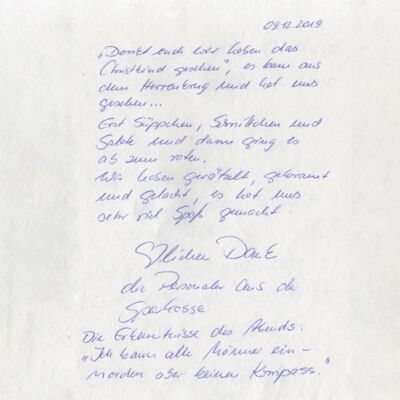 09.12.2019
"Denkt euch wir haben das
Christkind gesehen", es kam aus
dem und hat uns
gesehen...
Erst Süppchen, Schnittchen und
Salate und dann ging es
ab zum raten.
Wir haben gerätselt, gekramt
und gelacht, es hat uns
sehr viel Spaß gemacht.
Herzlichen Dank
die Personaler aus der
Sparkasse
Die Erkenntnisse des Abends:
"Ich kann alle Männer ein-
norden oder keinen Kompass."